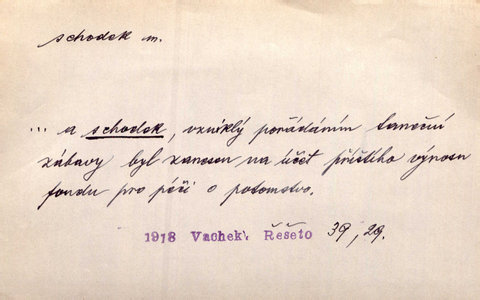 schodek m.
... a schodek, vzniklý pořádáním taneční
zábavy byl zanesen na účet příštího výnosu
fondu pro péči o potomstvo.
1918 Vachek, Řešeto 39, 29.